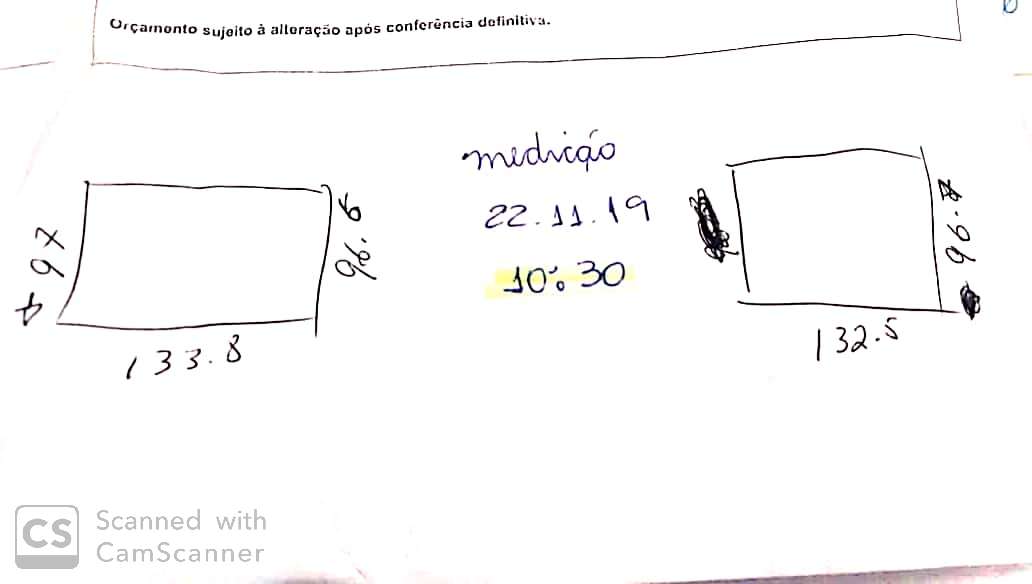 Orçamento sujeito à alteração após conferência definitiva.
medição
22.11.19
10:30
97
96.
133.8
96.
132.5
CS
Scanned with
CamScanner